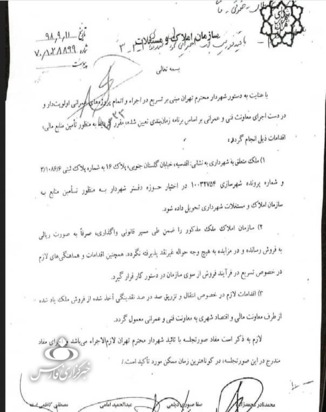 سازمان املاک و مستغلات
۹۸,۹,۱۱
بسمه تعالی
با عنایت به دستور شهردار محترم تهران مبنی بر تسریع در اجراء و اتمام پروژه‌های عمرانی اولویت‌دار و
در دست اجرای معاونت فنی و عمرانی بر اساس برنامه زمان‌بندی تعیین شده، مقرر گردید به منظور تأمین منابع مالی،
اقدامات ذیل انجام گردد:
۱) ملک متعلق به شهرداری به نشانی: اقدسیه، خیابان گلستان جنوبی، پلاک ۱۶ به شماره پلاک ثبتی
و شماره پرونده شهرسازی ۱۰۰۳۴۷۵۴ در اختیار حوزه دفتر شهردار به منظور تأمین منابع به
سازمان املاک و مستغلات شهرداری تحویل داده شود.
۲) سازمان املاک ملک مذکور را ضمن طی مسیر قانونی واگذاری، صرفاً به صورت ریالی
به فروش رسانده و در مزایده به هیچ وجه حواله غیرنقد پذیرفته نگردد. همچنین اقدامات و هماهنگی‌های لازم
در خصوص تسریع در فرآیند فروش از سوی سازمان در دستور کار قرار گیرد.
۳) اقدامات لازم در خصوص انتقال و تزریق صد در صد نقدینگی اخذ شده از فروش ملک یاد شده
از طرف معاونت مالی و اقتصاد شهری به معاونت فنی و عمرانی معمول گردد.
لازم به ذکر است مفاد صورتجلسه با تائید شهردار تهران لازم‌الاجراء می‌باشد و اجرای مفاد
مندرج در این صورتجلسه، در کوتاهترین زمان ممکن مورد تأکید است.
عبدالحمید امامی
خبرگزاری فارس